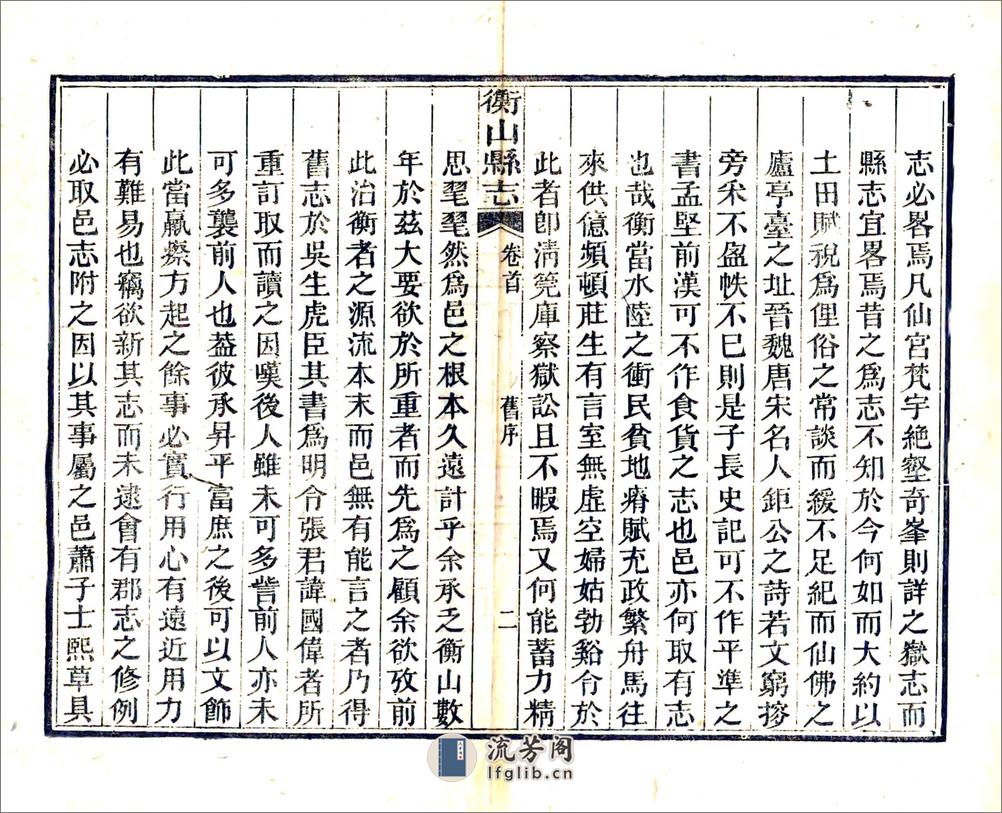 志必畧焉凡仙宮梵宇絶壑奇峯則詳之嶽志而
縣志宜畧焉昔之爲志不知於今何如而大約以
土田賦稅爲俚俗之常談而緩不足紀而仙佛之
廬亭臺之址晉魏唐宋名人鉅公之詩若文窮搜
旁采不盈帙不已則是子長史記可不作平準之
書孟堅前漢可不作食貨之志也邑亦何取有志
也哉衡當水陸之衝民貧地瘠賦充政繁舟馬往
來供億頻頓莊生有言室無虛空婦姑勃谿令於
此者卽淸筦庫察獄訟且不暇焉又何能蓄力精
衡山縣志 卷首 舊序 二
思毣毣然爲邑之根本久遠計乎余承乏衡山數
年於茲大要欲於所重者而先爲之顧余欲攷前
此治衡者之源流本末而邑無有能言之者乃得
舊志於吳生虎臣其書爲明令張君諱國偉者所
重訂取而讀之因嘆後人雖未可多訾前人亦未
可多襲前人也葢彼承昇平富庶之後可以文飾
此當羸瘵方起之餘事必實行用心有遠近用力
有難易也竊欲新其志而未逮會有郡志之修例
必取邑志附之因以其事屬之邑蕭子士熙草具
流芳阁
lfglib.cn